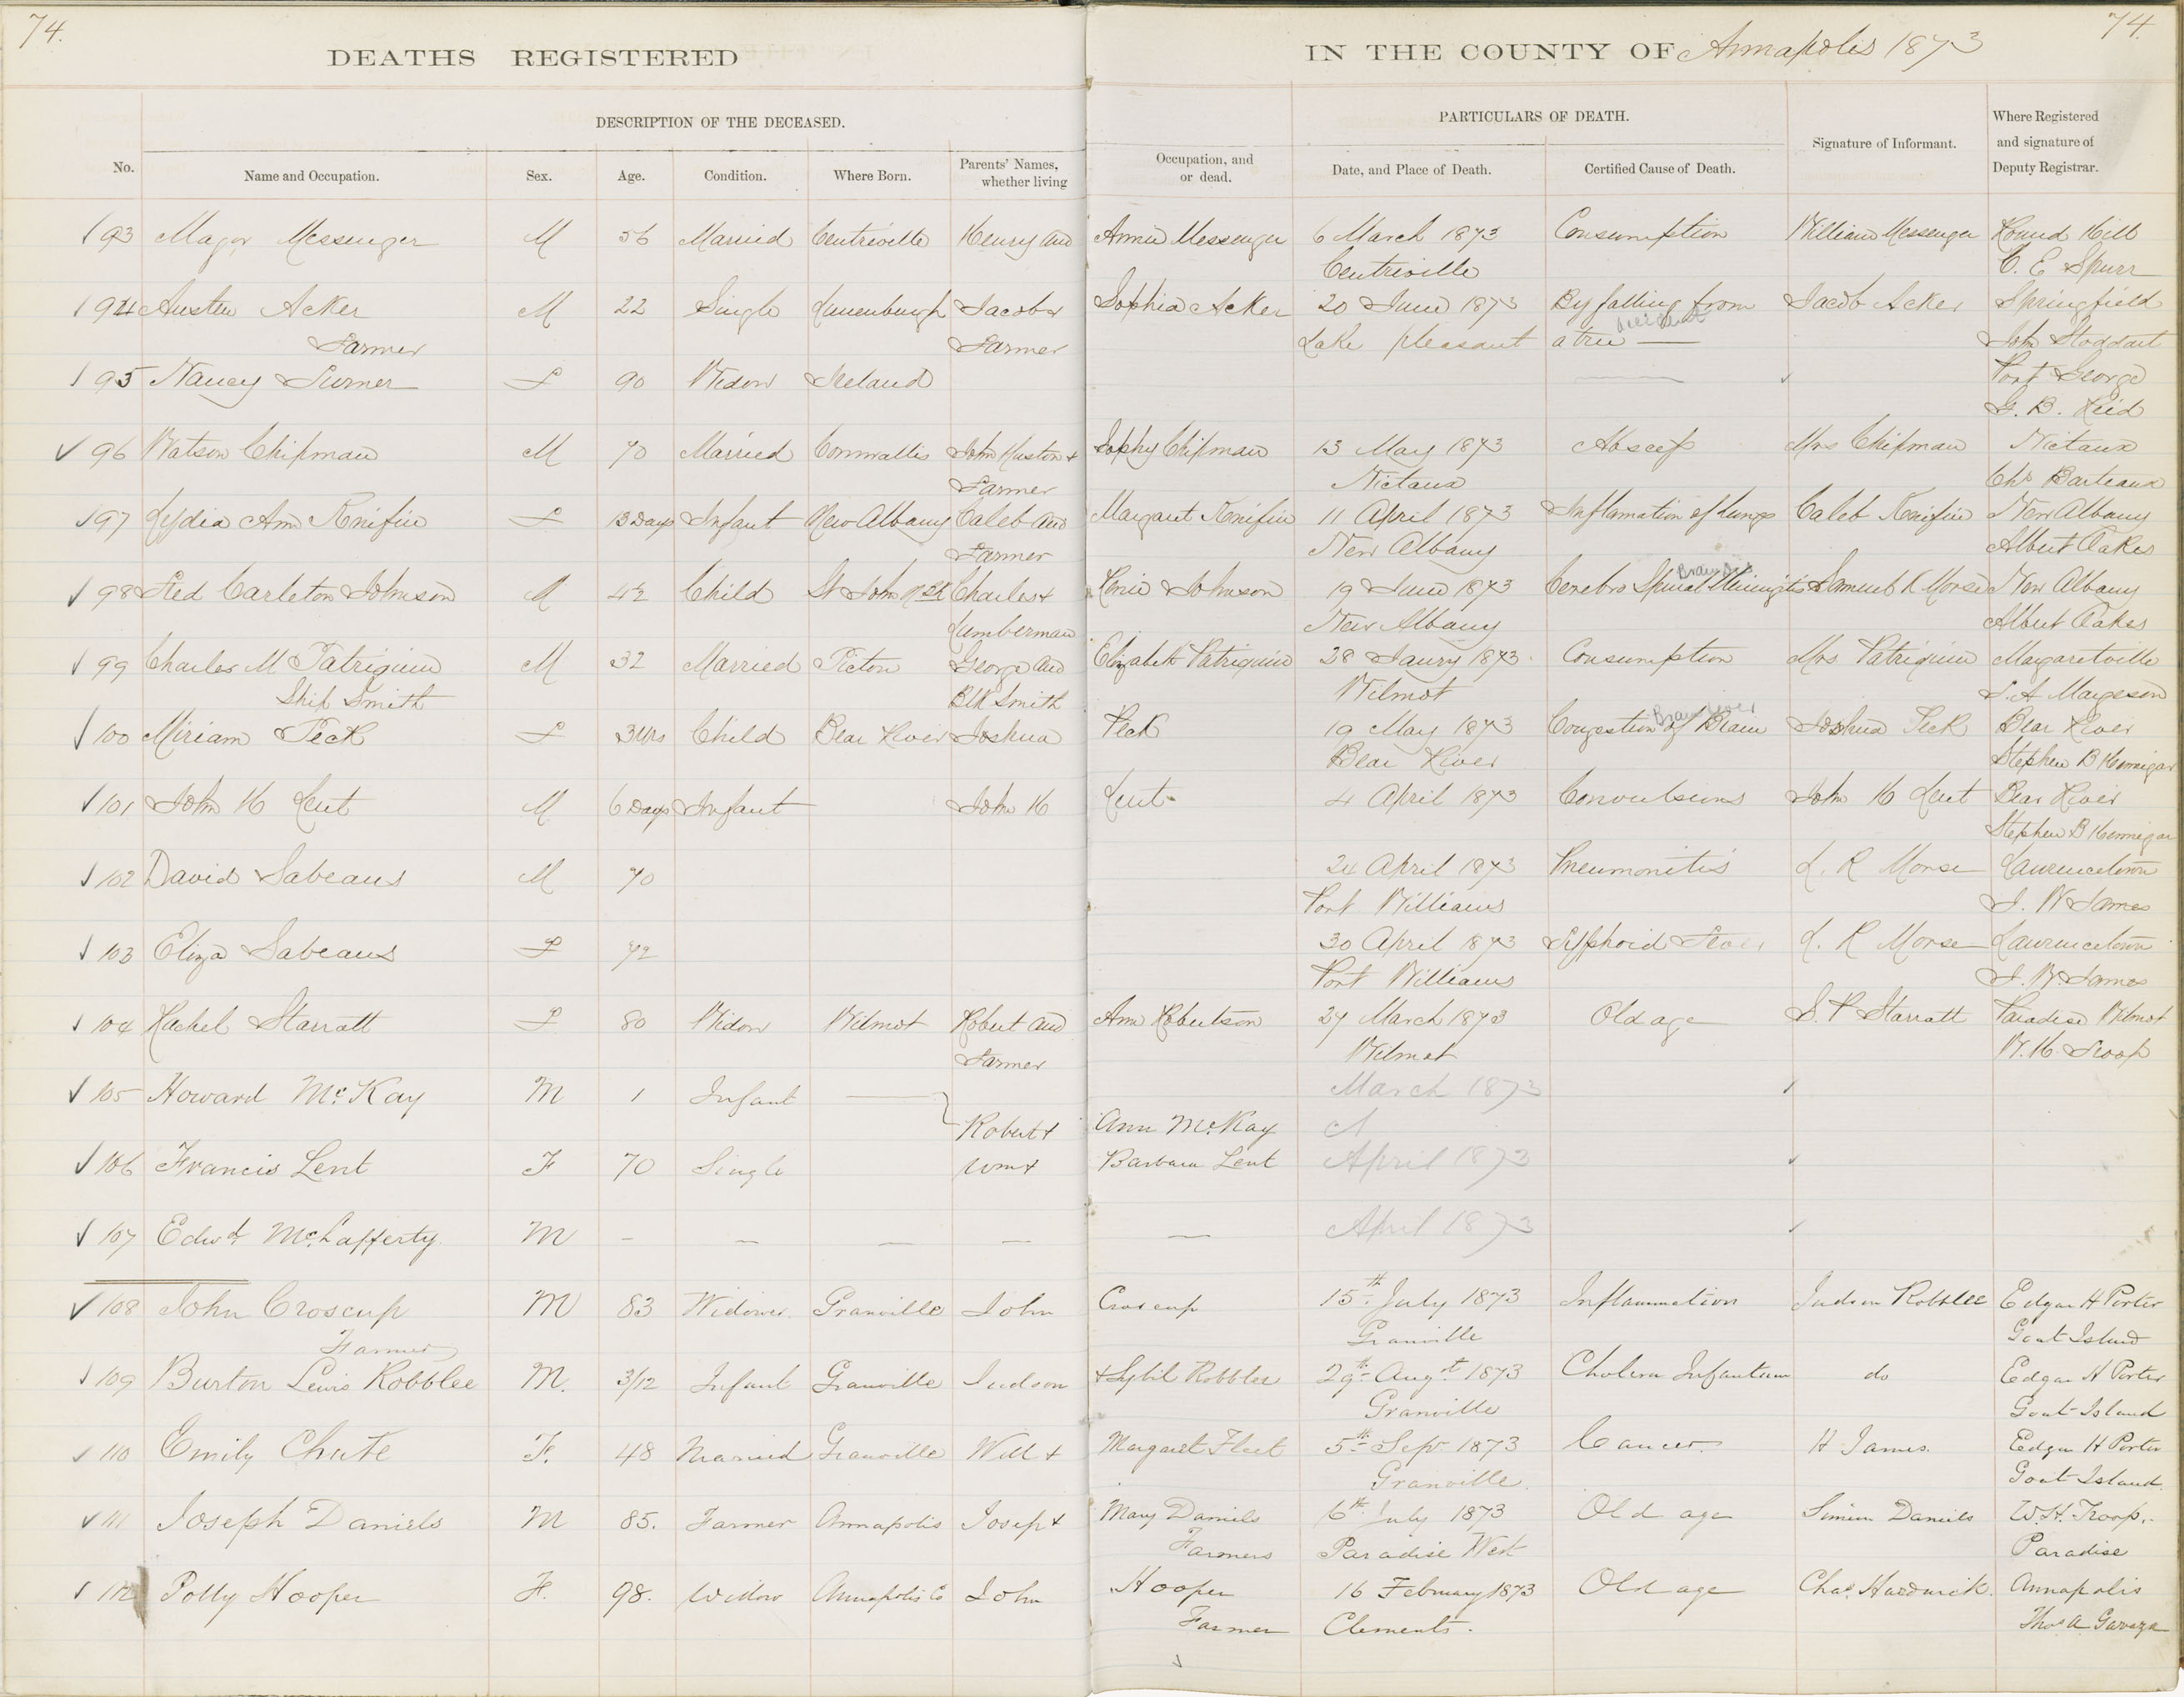 74.
74
DEATHS REGISTERED
IN THE COUNTY OF Annapolis 1873
DESCRIPTION OF THE DECEASED.
PARTICULARS OF DEATH.
Signature of Informant.
Where Registered
and signature of
Deputy Registrar.
No.
Name and Occupation.
Sex.
Age.
Condition.
Where Born.
Parents' Names,
whether living
Occupation, and
or dead.
Date, and Place of Death.
Certified Cause of Death.
93 Major Messenger M 56 Married Centreville Henry and Annie Messenger 6 March 1873 Consumption William Messenger Round Hill
Centreville C. E Spurr
94 Austen Acker M 22 Single Lunenburgh Jacob & Sophia Acker 20 June 1873 By falling from Jacob Acker Springfield
Farmer Farmer Lake pleasant a tree accident John Stoddart
95 Nancy Turner F 90 Widow Ireland Port George
G. B. Reid
96 Watson Chipman M 70 Married Cornwallis John Huston & Sophy Chipman 13 May 1873 Abscess Mrs Chipman Nictaux
Farmer Nictaux Chs Barteaux
97 Lydia Ann Knifin F 13 Days Infant New Albany Caleb and Margaret Knifin 11 April 1873 Inflamation of Lungs Caleb Knifin New Albany
Farmer New Albany Albert Oakes
98 Fred Carleton Johnson M 4½ Child St John N.B. Charles & Johnson 19 June 1873 Cerebro Spinal Meningitis Samuel K Morse New Albany
Lumberman New Albany Albert Oakes
99 Charles M Patriquin M 32 Married Picton George and Elizabeth Patriquin 28 Janry 1873 Consumption Mrs Patriquin Margaretville
Ship Smith Blk Smith Wilmot S. A Margeson
100 Miriam Peck F 3 yrs Child Bear River Joshua Peck 19 May 1873 Congestion of Brain Joshua Peck Bear River
Brain fever
Bear River Stephen B Hennigar
101 John H Lent M 6 Days Infant John H Lent 4 April 1873 Convulsions John H Lent Bear River
Stephen B Hennigar
102 David Sabeans M 70 24 April 1873 Pneumonitis L. R Morse Laurencetown
Port Williams J. W James
103 Eliza Sabeans F 72 30 April 1873 Typhoid Fever L. R Morse Laurencetown
Port Williams J. W. James
104 Rachel Starratt F 80 Widow Wilmot Robert and Ann Robertson 27 March 1873 Old age S. P Starratt Paradise Wilmot
Farmer Wilmot W. H. Troop
105 Howard McKay M 1 Infant — March 1873
Robert & Ann McKay A
106 Francis Lent F 70 Single Wm & Barbara Lent April 1873
107 Edwd. McLafferty M – — — — — April 1873
108 John Croscup M 83 Widower Granville John Croscup 15th July 1873 Inflammation Judson Robblee Edgar H Porter
Farmer Granville Goat Island
109 Burton Lewis Robblee M. 3/12 Infant Granville Judson & Sybil Robblee 29th Augt 1873 Cholera Infantum do Edgar H Porter
Granville Goat Island
110 Emily Chute F. 48 Married Granville Will & Margaret Fleet 5th Sepr 1873 Cancer. H James. Edgar H Porter
Granville. Goat Island.
111 Joseph Daniels M 85. Farmer Annapolis Joseph & Mary Daniels 6th July 1873 Old age Simeon Daniels W. H. Troop.
Farmers Paradise West Paradise
112 Polly Hooper F. 98. Widow Annapolis Co John Hooper 16 February 1873 Old age Chas. Hardwick. Annapolis
Farmer Clements. Thos A Gavaza